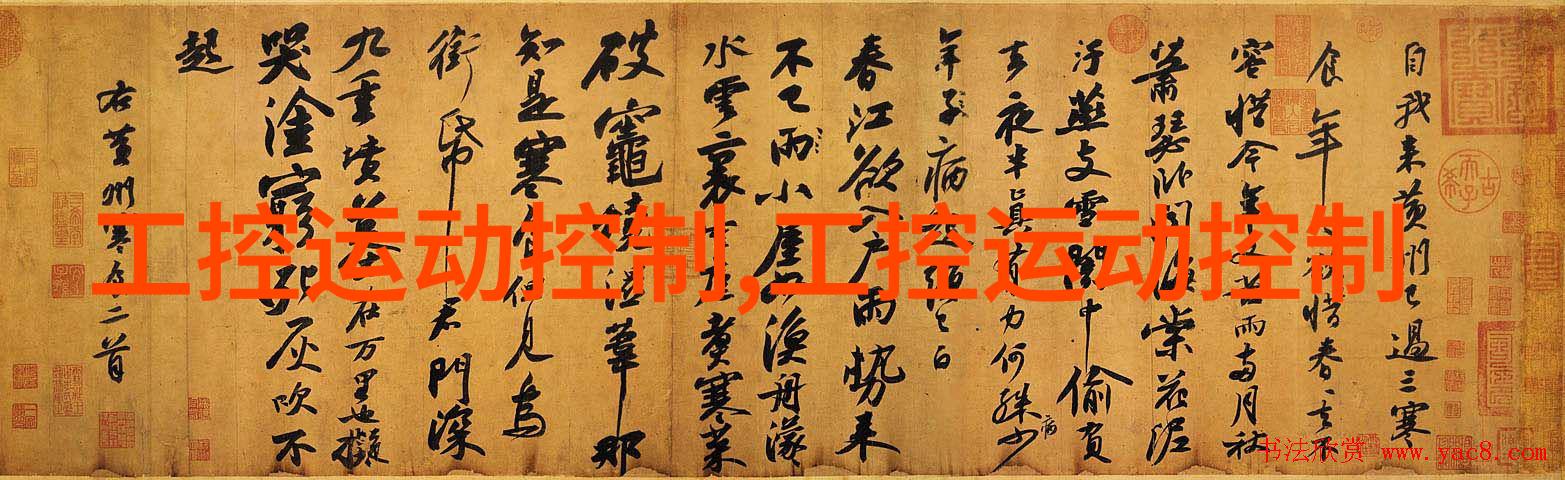 自我来黄州已過三寒
食年年欲惜春春去不
容惜今年又苦雨兩月秋
蕭瑟卧聞海棠花泥
汙燕支雪闇中偷負
去夜半真有力何殊少
年子病起頭已白
春江欲入户雨勢来
不已雨小屋如漁舟濛
水雲裏空庖煮寒菜
破竈燒濕葦那
知是寒食但見烏
銜帋君門深
九重墳墓在万里也擬
哭塗窮死灰吹不
起
右黄州寒食二首
工控运动控制,工控运动控制
书法欣赏 www.yac8.com